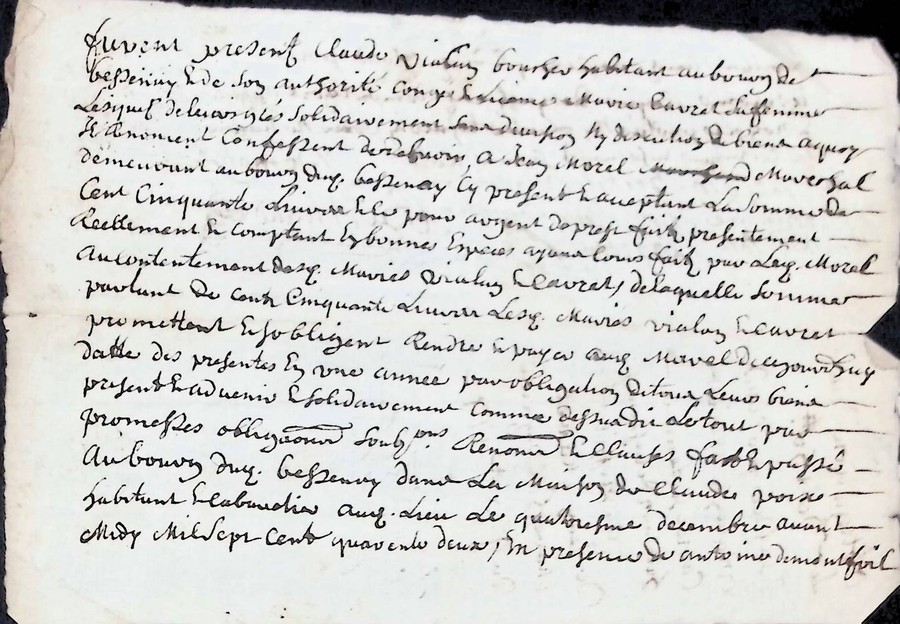 furent present Claude Vialon boucher habitant au bourg de
bessenay & de son authorité Marie Lavret sa femme
Lesquels de leurs grés solidairement sans division ny discution de biens a quoy
Ils renoncent Confessent debvoir, a Jean Morel Mareshal
demeurant au bourg dud. bessenay Cy present & acceptant La somme de
Cent Cinquante Livres & ce pour argent de prest fait presentement
Reellement & comptant En bonnes Espèces ayans cours fait par Led. Morel
au contentement desd. Mariés Vialon & Lavret, de laquelle somme
partant de cent Cinquante Livres Lesd. Mariés Vialon & Lavret
promettent & sobligent Rendre & payer aud. Morel de ajourdhuy
datte des presentes En une année par obligation de tous Leurs biens
present & advenir & solidairement comme dessus a dit Le tout par
promesses obligaons soubons Renons & Clauses fait & passé
Au bourg dud. bessenay dans La Maison de Claude
habitant & aud. Lieu Le quatoresme decembre avant
Midy Mil Sept Cent quarente deux, En presence de antoine demontfoil